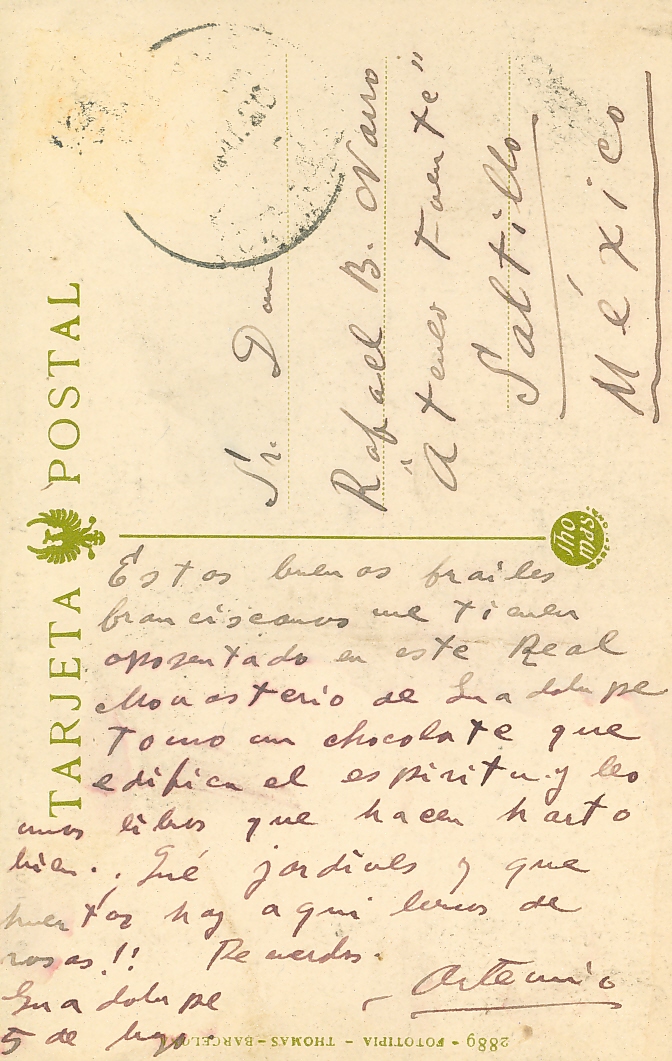 TARJETA POSTAL
Sr. Don
Rafael B. Narro
"Ateneo Fuente"
Saltillo
México
Thomas
Estos buenos frailes
franciscanos me tienen
aposentado en este Real
Monasterio de Guadalupe
tomo un chocolate que
edifica el espiritu y leo
unos libros que hacen harto
bien. ¡Qué jardines y que
huertos hay aqui llenos de
rosas!! Recuerdos.
Artemio
Guadalupe
5 de
2889 - FOTOTIPIA - THOMAS - BARCELO